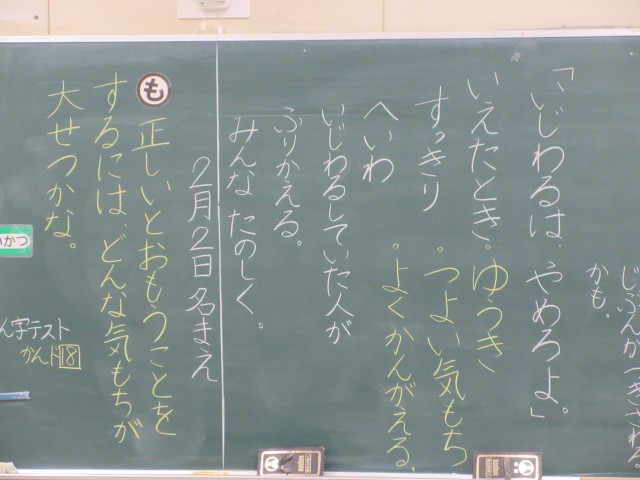 じぶんがつぎされる。
かも。
「いじわるは、やめろよ」。
いえたとき。ゆうき
すっきり 。つよい気もち
へいわ 。よくかんがえる。
いじわるしていた人が
ふりかえる。
みんなたのしく。
2月2日 名まえ
も 正しいとおもうことを
するには、どんな気もちが
大せつかな。
いかつ
ん字テスト
かんド18